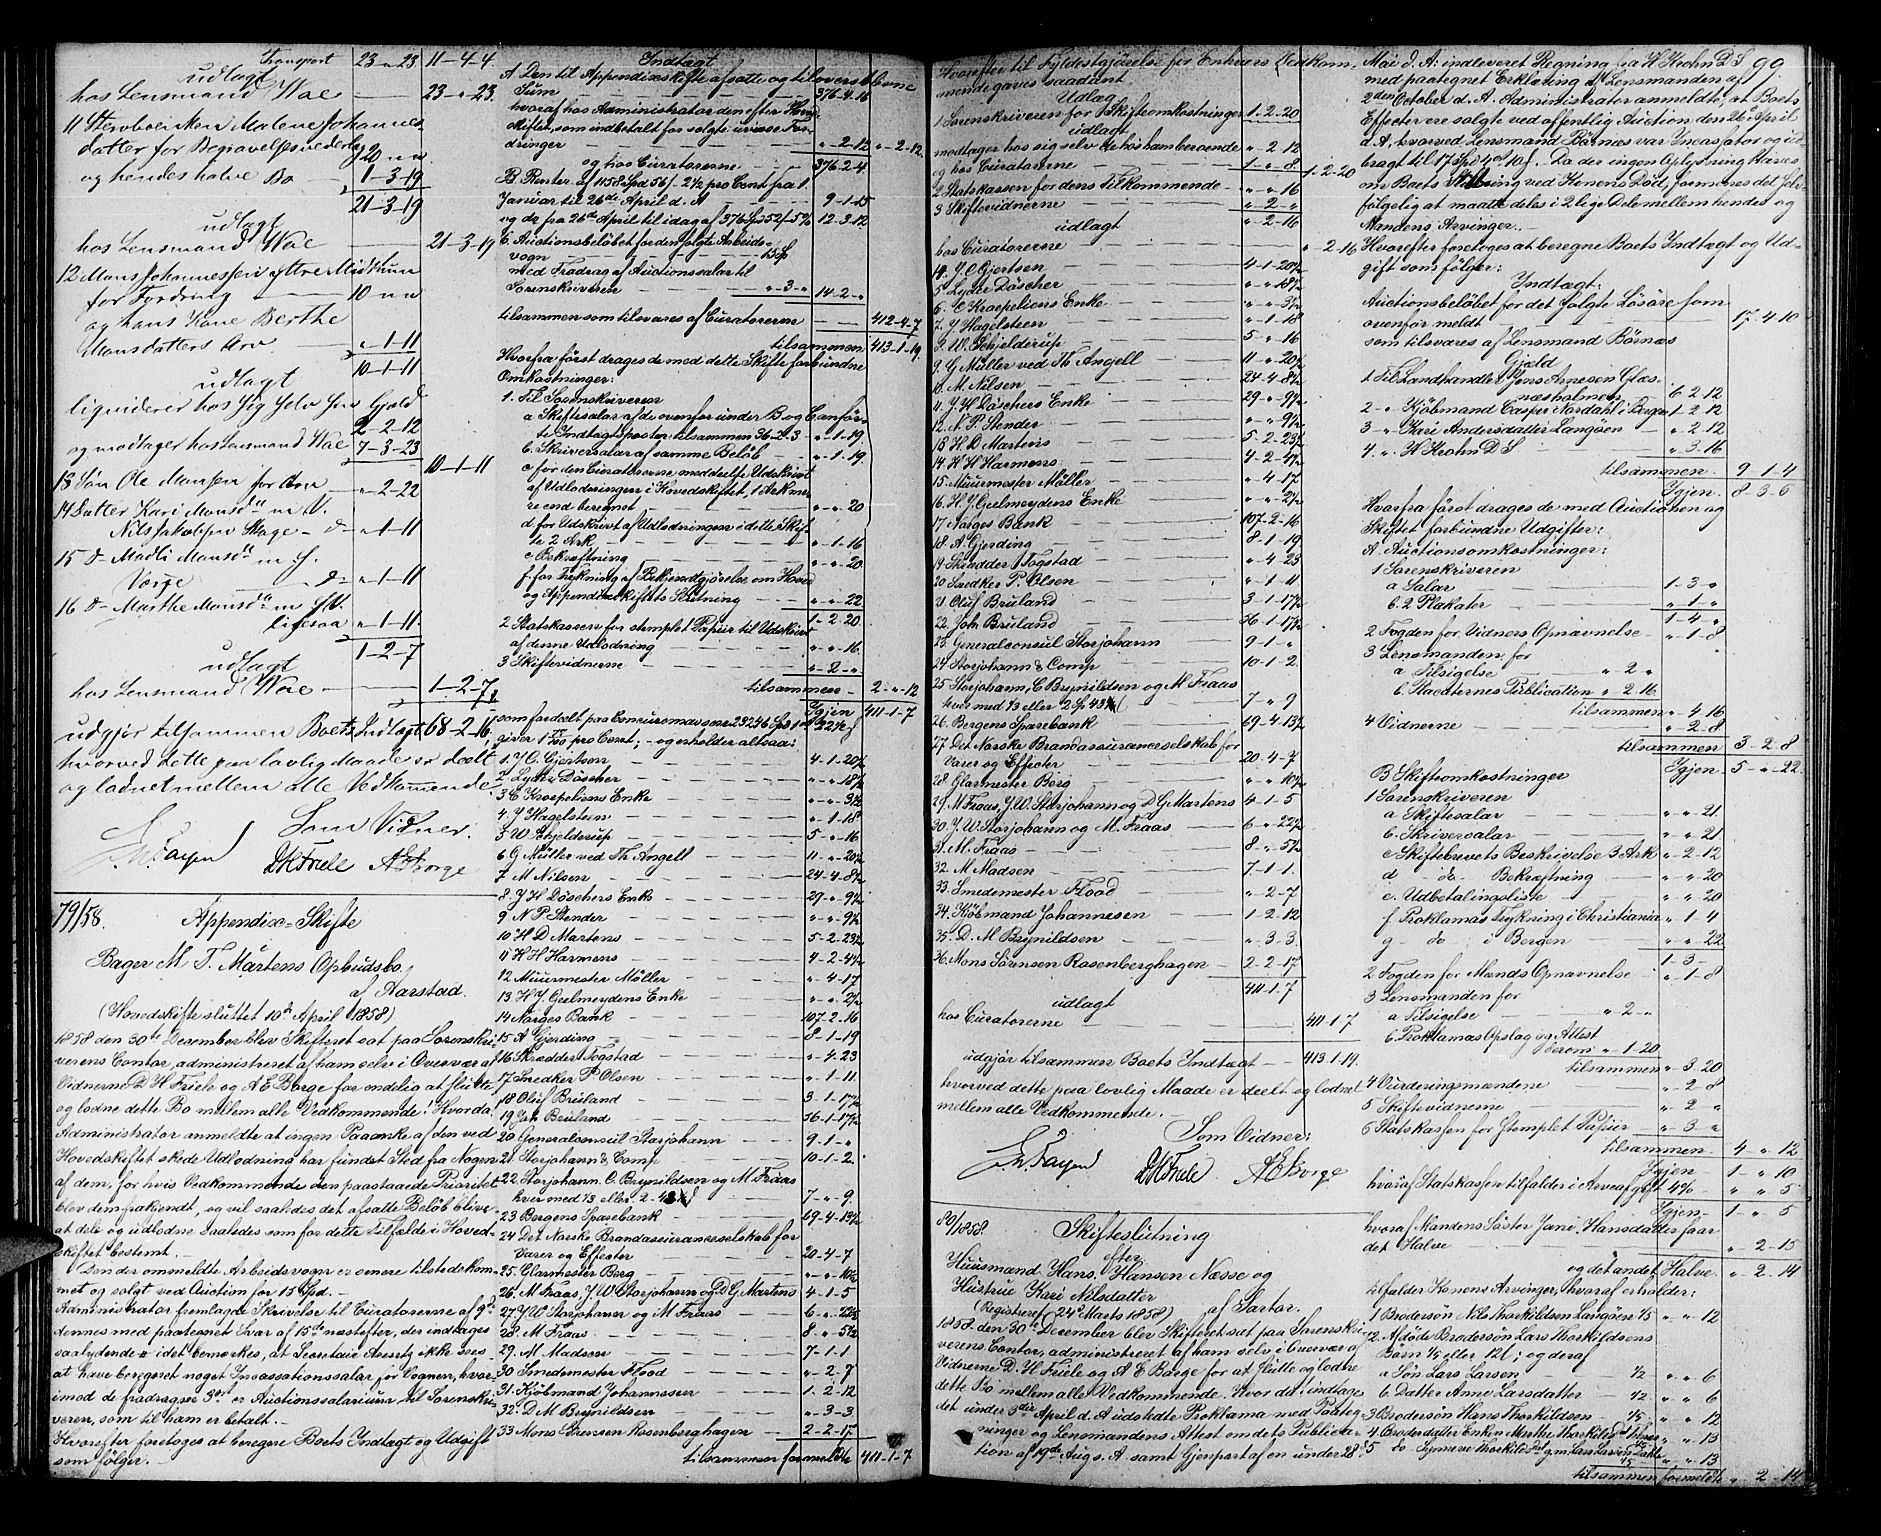 Transport 23 " 23 11-4-4
udlagt
hos Lensmand Wae 23-"-23.
11 Stervboenken Malene Johannes
datter for Begravelsesvederlag 20 " "
og hendes halve Bo 1-3-19
21-3-19
udlagt
hos Lensmand Wae 21-3-19
12 Mons Johannessen yttre Midttun
for Fordring 10 " "
og hans Kone Berthe
Monsdatters Arv "-1-11
10-1-11
udlagt
liquiderer hos sig selv sin Gjæld
2-2-12
og modtager hos Lensmand Wae 7-3-23
10-1-11
13 Søn Ole Monsen for Arv "-2-22
14 Datter Kari Monsdr m V.
Nils Jakobsen Hage - do "-1-11
15 do Madli Monsdr m f.
Værge do "-1-11
16 do Marthe Monsdr m f V.
"-1-11
1-2-7
udlagt
hos Lensmand Wae 1-2-7
udgjør tilsammen Boets Indtægt 68-2-16
hvorved dette paa lovlig Maade er deelt
og lodnet mellem alle Vedkommende.
Som Vidner.
DHFriele AEBorge
79/58. Appendix-Skifte
i
Bager M. T. Martens Opbudsbo
af Aarstad.
(Hovedskifte sluttet 10de April 1858)
1858 den 30te December blev Skifteret sat paa Sorenskri-
verens Contor, administreret af ham selv i Overvær af
Vidnerne D. H. Friele og A E Borge for endelig at slutte
og lodne dette Bo mellem alle Vedkommende. Hvorda
Administrator anmeldte at ingen Paaanke af den ved
Hovedskiftet skede Udlodning har fundet Sted fra Nogen
af dem, for hvis Vedkommende den paastaaede Prioritet
blev dem frakjendt, og vil saaledes det afsatte Beløb blive
at dele og udlodne saaledes som for dette Tilfælde i Hoved-
skiftet bestemt.-
Den der ommeldte Arbeidsvogn er senere tilstedekom-
met og solgt ved Auction for 15 Spd.-
Administrator fremlagde Skrivelse til Curatorerne af 9de
dennes med paategnet Svar af 15de næstefter, der indtages
saalydende i det bemærkes, at Secretair Arentz ikke sees
at have beregnet noget Incassationssalar for Vognen, hvor-
imod de fradragne 3ort er Auctionssalarium til Sorenskri-
veren, som til ham er betalt.-
Hvorefter foretoges at beregne Boets Indtægt og Udgift
som følger.-
Indtægt
A. Den til Appendixskifte afsatte og tiloversblevne
Sum 376-4-16
hvoraf hos Administrator den efter Hoved-
skiftet, som indbetalt for solgte uvisse For-
dringer "-2-12 "-2-12
og hos Curatorerne 376-2-4
B. Renter af 1158 Spd 56 s. 2½ pro Cent fra 1.
Januar til 26de April d. A 9-1-15
og do fra 26de April til idag af 376 Sp 52 s 5% 12-3-12
C Auctionsbeløbet for den solgte Arbeids-
vogn 15 Sp
med Fradrag af Auctionssalar til
Sorenskriveren "-3-" 14-2-"
tilsammen som tilsvares af Curatorerne 412-4-7
tilsammen 413-1-19
Hvorfra først drages de med dette Skifte forbundne
Omkostninger:
1. Til Sorenskriveren
a Skiftesalar af de ovenfor under B og C anfør-
te Indtægtsposter tilsammen 36-2-3 "-1-19
b. Skriversalar af samme Beløb "-1-19.
c for den Curatorerne meddeelte Udskrivt
af Udlodningen i Hovedskiftet, 1 Ark me-
re end beregnet "-"-20
d. for Udskrivt af Udlodningen i dette Skif-
te 2 Ark "-1-16
e Bekræftning "-"-20
f. for Trykning af Bekjendtgjørelse om Hoved
og Appendixskiftets Slutning "-"-22
1-2-20
2 Statskassen for stemplet Papiir til Udskrivt
af denne Udlodning "-"-16
3 Skiftevidnerne "-2-"
tilsammen 2-"-12
Igjen 411-1-7
som fordeelt paa Concursmassen
giver pro Cent; - og erholder altsaa:
1. J. C. Gjertsen 4-1-20½
2. Lyder Döscher "-"-18½
3 C Kroepeliens Enke "-"-3½
4. J Hagelsteen "-1-18
5 W. Schjelderup 5-"-16
6 G Müller ved Th. Angell 11-"-20½
7 M Nilsen 24-4-8½
8. J H Döschers Enke 29-"-9½
9 N P. Stender "-"-9½
10 H D Martens 5-2-23½
11 H H Harmens 4-2-4½
12 Muurmester Möller "-4-17
13 H. J. Geelmeydens Enke "-"-2½
14 Norges Bank 107-2-16
15 A Gjerding 8-1-19
16 Skrædder Fogstad "-4-23
17 Snedker P. Olsen "-1-11
18 Oluf Bruland 3-1-17½
19 Joh Bruland 36-1-17½
20 Generalconsul Storjohann 9-1-"
21 Storjohann & Comp 10-1-2
22 Storjohann, C. Brynildsen og M Fraas
hver med 1/3 eller 7-"-9
23 Bergens Sparebank 69-4-13½
24 Det Norske Brandassuranceselskab for
Varer og Effecter 20-4-7
25. Glarmester Berg "-"-10½
26. M Fraas, J. W. Storjohann og D G Martens 4-1-5
27 J. W. Storjohann og M Fraas 6-"-22½
28. M Fraas 8-"-5½
29. M. Madsen 7-1-1
30 Smedemester Flood "-2-7
31. Kjöbmand Johannesen 1-2-12
32. D M Brynildsen "-3-3
33 Mons Sörensen Rosenberghagen 2-2-17
tilsammen formeldte 411-1-7
Hvorefter til Fyldestgjørelse for Enhvers Vedkom-
mende gaves saadant
Udlæg
1 Sorenskriveren for Skifteomkostninger 1-2-20
udlagt
modtager hos sig selv de hos ham beroende "-2-12
og hos Curatorerne 1-"-8
1-2-20
2. Statskassen for dens Tilkommende "-"-16
3 Skiftevidnerne "-2-"
"-2-16
udlagt
hos Curatorerne "-2-16
4. J. C Gjertsen 4-1-20½
5. Lyder Döscher "-"-18½
6. C Kroepeliens Enke "-"-3½
7. J Hagelsteen "-1-18
8. W. Schjelderup 5-"-16
9. G Müller ved Th Angell 11-"-20½
10. M. Nilsen 24-4-8½
11. J H Döschers Enke 29-"-9½
12. N. P. Stender "-"-9½
13 H. D. Martens 5-2-23½
14 H H Harmens 4-2-4½
15 Muurmester Möller "-4-17
16 H. J. Geelmeydens Enke "-"-2½
17. Norges Bank 107-2-16
18. A Gjerding 8-1-19
19. Skrædder Fogstad "-4-23
20 Snedker P. Olsen "-1-11
21 Oluf Bruland 3-1-17½
22. Joh Bruland 36-1-17½
23. Generalconsul Storjohann 9-1-"
24 Storjohann & Comp 10-1-2
25 Storjohann, C Brynildsen og M Fraas
hver med 1/3 eller 7-"-9
26. Bergens Sparebank 69-4-13½
27 Det Norske Brandassuranceselskab for
Varer og Effecter 20-4-7
28 Glarmester Berg "-"-10½
29. M Fraas, J W. Storjohann og D G Martens 4-1-5
30. J. W. Storjohann og M. Fraas 6-"-22½
31. M. Fraas 8-"-5½
32. M Madsen 7-1-1
33. Smedemester Flood "-2-7
34. Kjöbmand Johannesen 1-2-12
35. D. M Brynildsen "-3-3
36. Mons Sörensen Rosenberghagen 2-2-17
411-1-7
udlagt
hos Curatorerne 411-1-7
udgjør tilsammen Boets Indtægt 413-1-19
hvorved dette paa lovlig Maade er deelt og lodnet
mellem alle Vedkommende.-
Som Vidner:
DHFriele AEBorge
80/1858. Skifteslutning
efter
Huusmand Hans Hansen Næsse og
Hustrue Kari Nilsdatter
(Registreret 24de Marts 1858) af Sartor.
1858 den 30te December blev Skifteret sat paa Sorenskri-
verens Contor, administreret af ham selv i Overvær af
Vidnerne D. H. Friele og A E Borge for at slutte og lodne
dette Bo mellem alle Vedkommende. Hvor da indtages
det under 3die April d. A udstedte Proklama med Paateg-
ninger og Lensmandens Attest om dets Publica-
tion af 19de Aug. s. A samt Gjenpart af en under 28de
99
Mai d. A. indleveret Regning fra H. Krohn D S
med paategnet Erklæring af Lensmanden af
2den October d. A. Administrator anmeldte, at Boets
Effecter ere solgte ved offentlig Auction den 26de April
d A, hvorved Lensmand Börnæs var Incassator og ud-
bragt til 17 Spd 4ort 10 s. Da der ingen Oplysning haves
om Boets Stilling ved Konens Död, formenes det følg-
følgelig at maatte deles i 2 lige Dele mellem hendes og
Mandens Arvinger.-
Hvorefter foretoges at beregne Boets Indtægt og Ud-
gift som følger:
Indtægt:
Auctionsbeløbet for det solgte Lösöre som
ovenfor meldt 17-4-10
som tilsvares af Lensmand Börnæs
Gjæld
1. Til Landhandler Jens Arnesen Glæs-
næsholmen 6-2-12
2-" Kjöbmand Casper Nordahl i Bergen 1-2-12
3 " Kari Andersdatter Langöen "-2-12
4. " H Krohn D S "-3-16
tilsammen 9-1-4
Igjen 8-3-6
Hvorfra først drages de med Auctionen og
Skiftet forbundne Udgifter:
A. Auctionsomkostninger:
1 Sorenskriveren
a Salar 1-3-"
b. 2 Plakater "-1-"
1-4-"
2 Fogden for Vidners Opnævnelse "-1-8
3 Lensmanden for
a Tilsigelse "-2-"
b. Placaternes Publication "-2-16
tilsammen "-4-16
4 Vidnerne "-2-8
tilsammen 3-2-8
Igjen 5-"-22
B Skifteomkostninger
1 Sorenskriveren
a Skiftesalar "-"-21.
b. Skriversalar "-"-21
c Skiftebrevets Beskrivelse 3 Ark "-2-12
d do. Bekræftning "-"-20
e. Udbetalingsliste "-"-20
f Proklamas Trykning i Christiania "-1-4
g do i Bergen "-"-22
1-3-"
2 Fogden for Mænds Opnævnelse "-1-8
3 Lensmanden for
a Tilsigelse "-2-"
b Proklamas Opslag og Attest
derom "-1-20
tilsammen "-3-20
4 Vurderingsmændene "-2-8
5 Skiftevidnerne "-2-"
6 Statskassen for stemplet Papiir "-3-"
tilsammen 4-"-12
Igjen 1-"-10
hvoraf Statskassen tilfalder i Arveafgift 4% "-"-5
Igjen 1-"-5
hvoraf Mandens Söster Jani Hansdatter faar
det Halve "-2-15
og det andet Halve "-2-14
tilfalder Konens Arvinger, hvoraf erholder:
1 Brodersön Nils Thorkildsen Langöen 1/5 "-"-12
2. Afdöde Brodersön Lars Thorkildsens
Börn 1/5 eller 12 s; og deraf
a Sön Lars Larsen 1/2 "-"-6
b Datter Anne Larsdatter 1/2 "-"-6
3 Brodersön Hans Thorkildsen 1/5 "-"-12
4 Broderdatter Enken Marthe Thorkildsdr "-"-13
5 do Synneve Thorkildsdr g. m Lars Larsen 1/5 "-"-13
tilsammen formeldte "-2-14